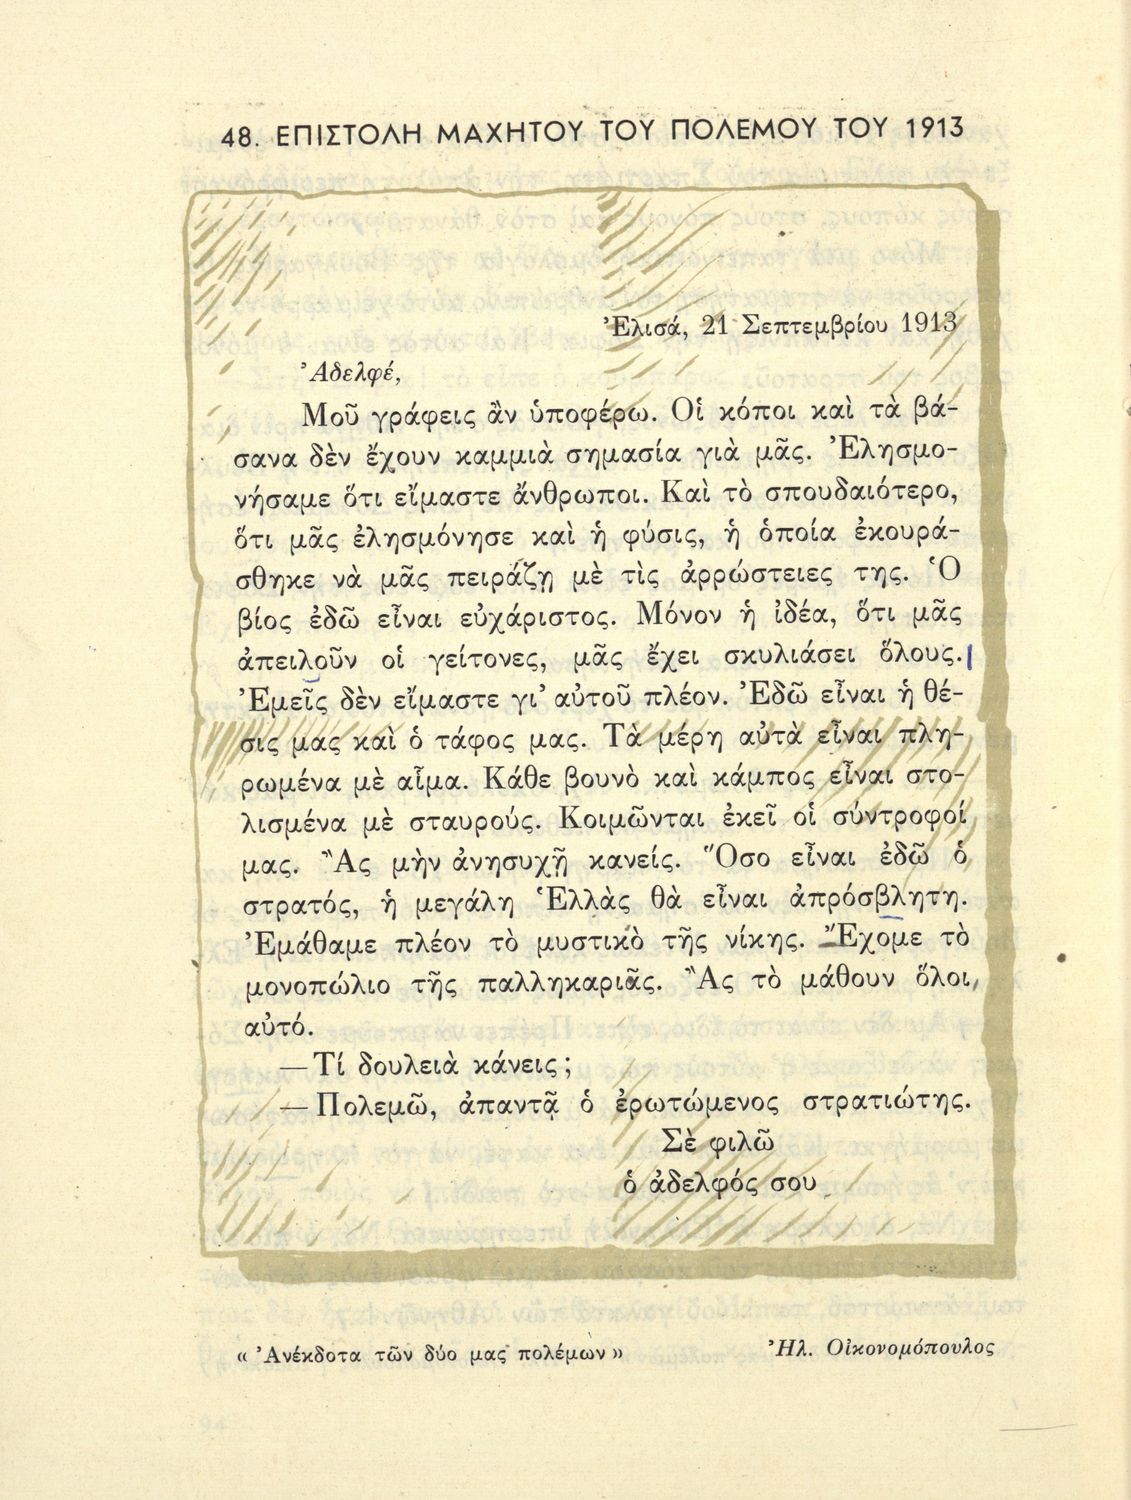 48. ΕΠΙΣΤΟΛΗ ΜΑΧΗΤΟΥ ΤΟΥ ΠΟΛΕΜΟΥ ΤΟΥ 1913
Ἐλισά, 21 Σεπτεμβρίου 1913
Ἀδελφέ,
Μοῦ γράφεις ἂν ὑποφέρω. Οἱ κόποι καὶ τὰ βά-
σανα δὲν ἔχουν καμμιὰ σημασία γιὰ μᾶς. Ἐλησμο-
νήσαμε ὅτι εἴμαστε ἄνθρωποι. Καὶ τὸ σπουδαιότερο,
ὅτι μᾶς ἐλησμόνησε καὶ ἡ φύσις, ἡ ὁποία ἐκουρά-
σθηκε νὰ μᾶς πειράζῃ μὲ τὶς ἀρρώστειες της. Ὁ
βίος ἐδῶ εἶναι εὐχάριστος. Μόνον ἡ ἰδέα, ὅτι μᾶς
ἀπειλοῦν οἱ γείτονες, μᾶς ἔχει σκυλιάσει ὅλους.
Ἐμεῖς δὲν εἴμαστε γι' αὐτοῦ πλέον. Ἐδῶ εἶναι ἡ θέ-
σις μας καὶ ὁ τάφος μας. Τὰ μέρη αὐτὰ εἶναι πλη-
ρωμένα μὲ αἷμα. Κάθε βουνὸ καὶ κάμπος εἶναι στο-
λισμένα μὲ σταυρούς. Κοιμῶνται ἐκεῖ οἱ σύντροφοί
μας. Ἂς μὴν ἀνησυχῇ κανείς. Ὅσο εἶναι ἐδῶ ὁ
στρατός, ἡ μεγάλη Ἑλλὰς θὰ εἶναι ἀπρόσβλητη.
Ἐμάθαμε πλέον τὸ μυστικὸ τῆς νίκης. Ἔχομε τὸ
μονοπώλιο τῆς παλληκαριᾶς. Ἂς τὸ μάθουν ὅλοι,
αὐτό.
— Τί δουλειὰ κάνεις;
— Πολεμῶ, ἀπαντᾷ ὁ ἐρωτώμενος στρατιώτης.
Σὲ φιλῶ
ὁ ἀδελφός σου
« Ἀνέκδοτα τῶν δύο μας πολέμων »
Ἠλ. Οἰκονομόπουλος